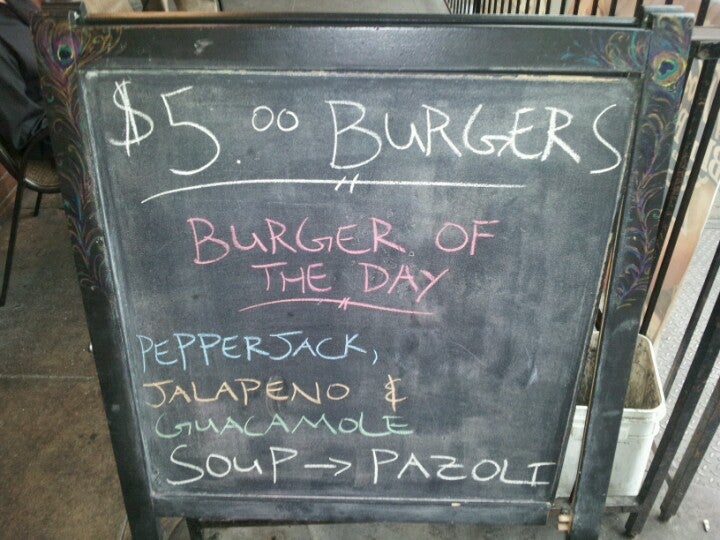 $5.00 BURGERS
BURGER OF
THE DAY
PEPPERJACK,
JALAPENO &
GUACAMOLE
SOUP → PAZOLI